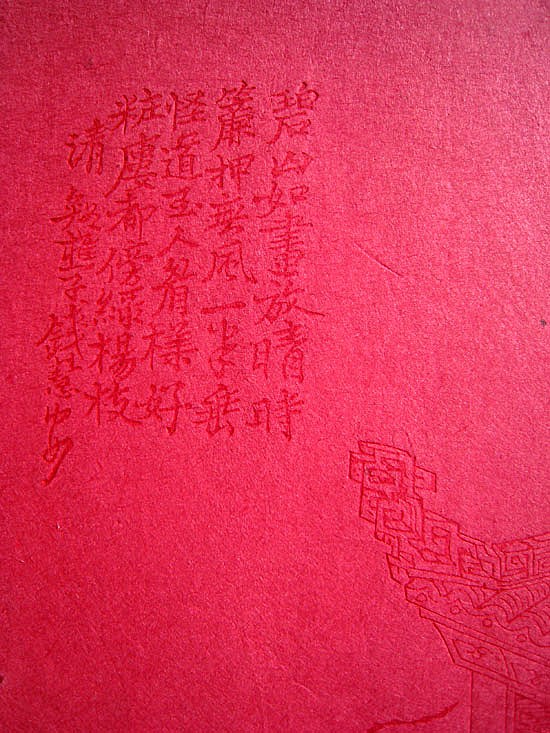 碧山如畫放晴時
簾押無風一半垂
怪道玉人眉樣好
粧都傍綠楊枝
清谿樵子錢慧安